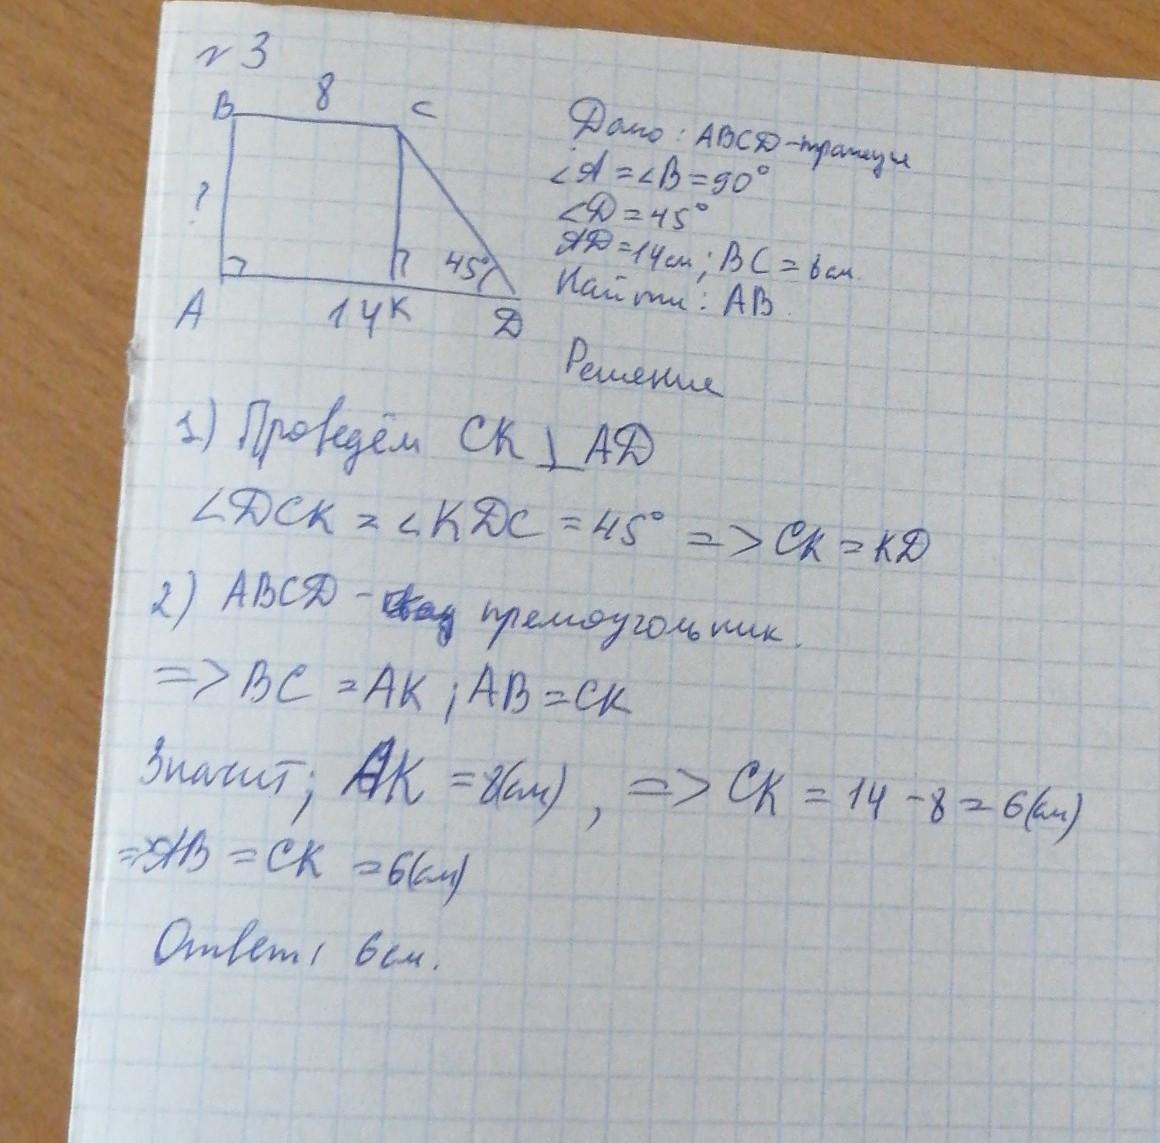 №3
B 8 C
?
45°
A 14 K D
Дано: ABCD - трапеция
∠A = ∠B = 90°
∠D = 45°
AD = 14см; BC = 8см.
Найти: AB.
Решение
1) Проведём CK ⊥ AD
∠DCK = ∠KDC = 45° => CK = KD
2) ABCD - премоугольник.
=> BC = AK; AB = CK
Значит; AK = 8(см), => CK = 14 - 8 = 6(см)
=> AB = CK = 6(см)
Ответ: 6см.